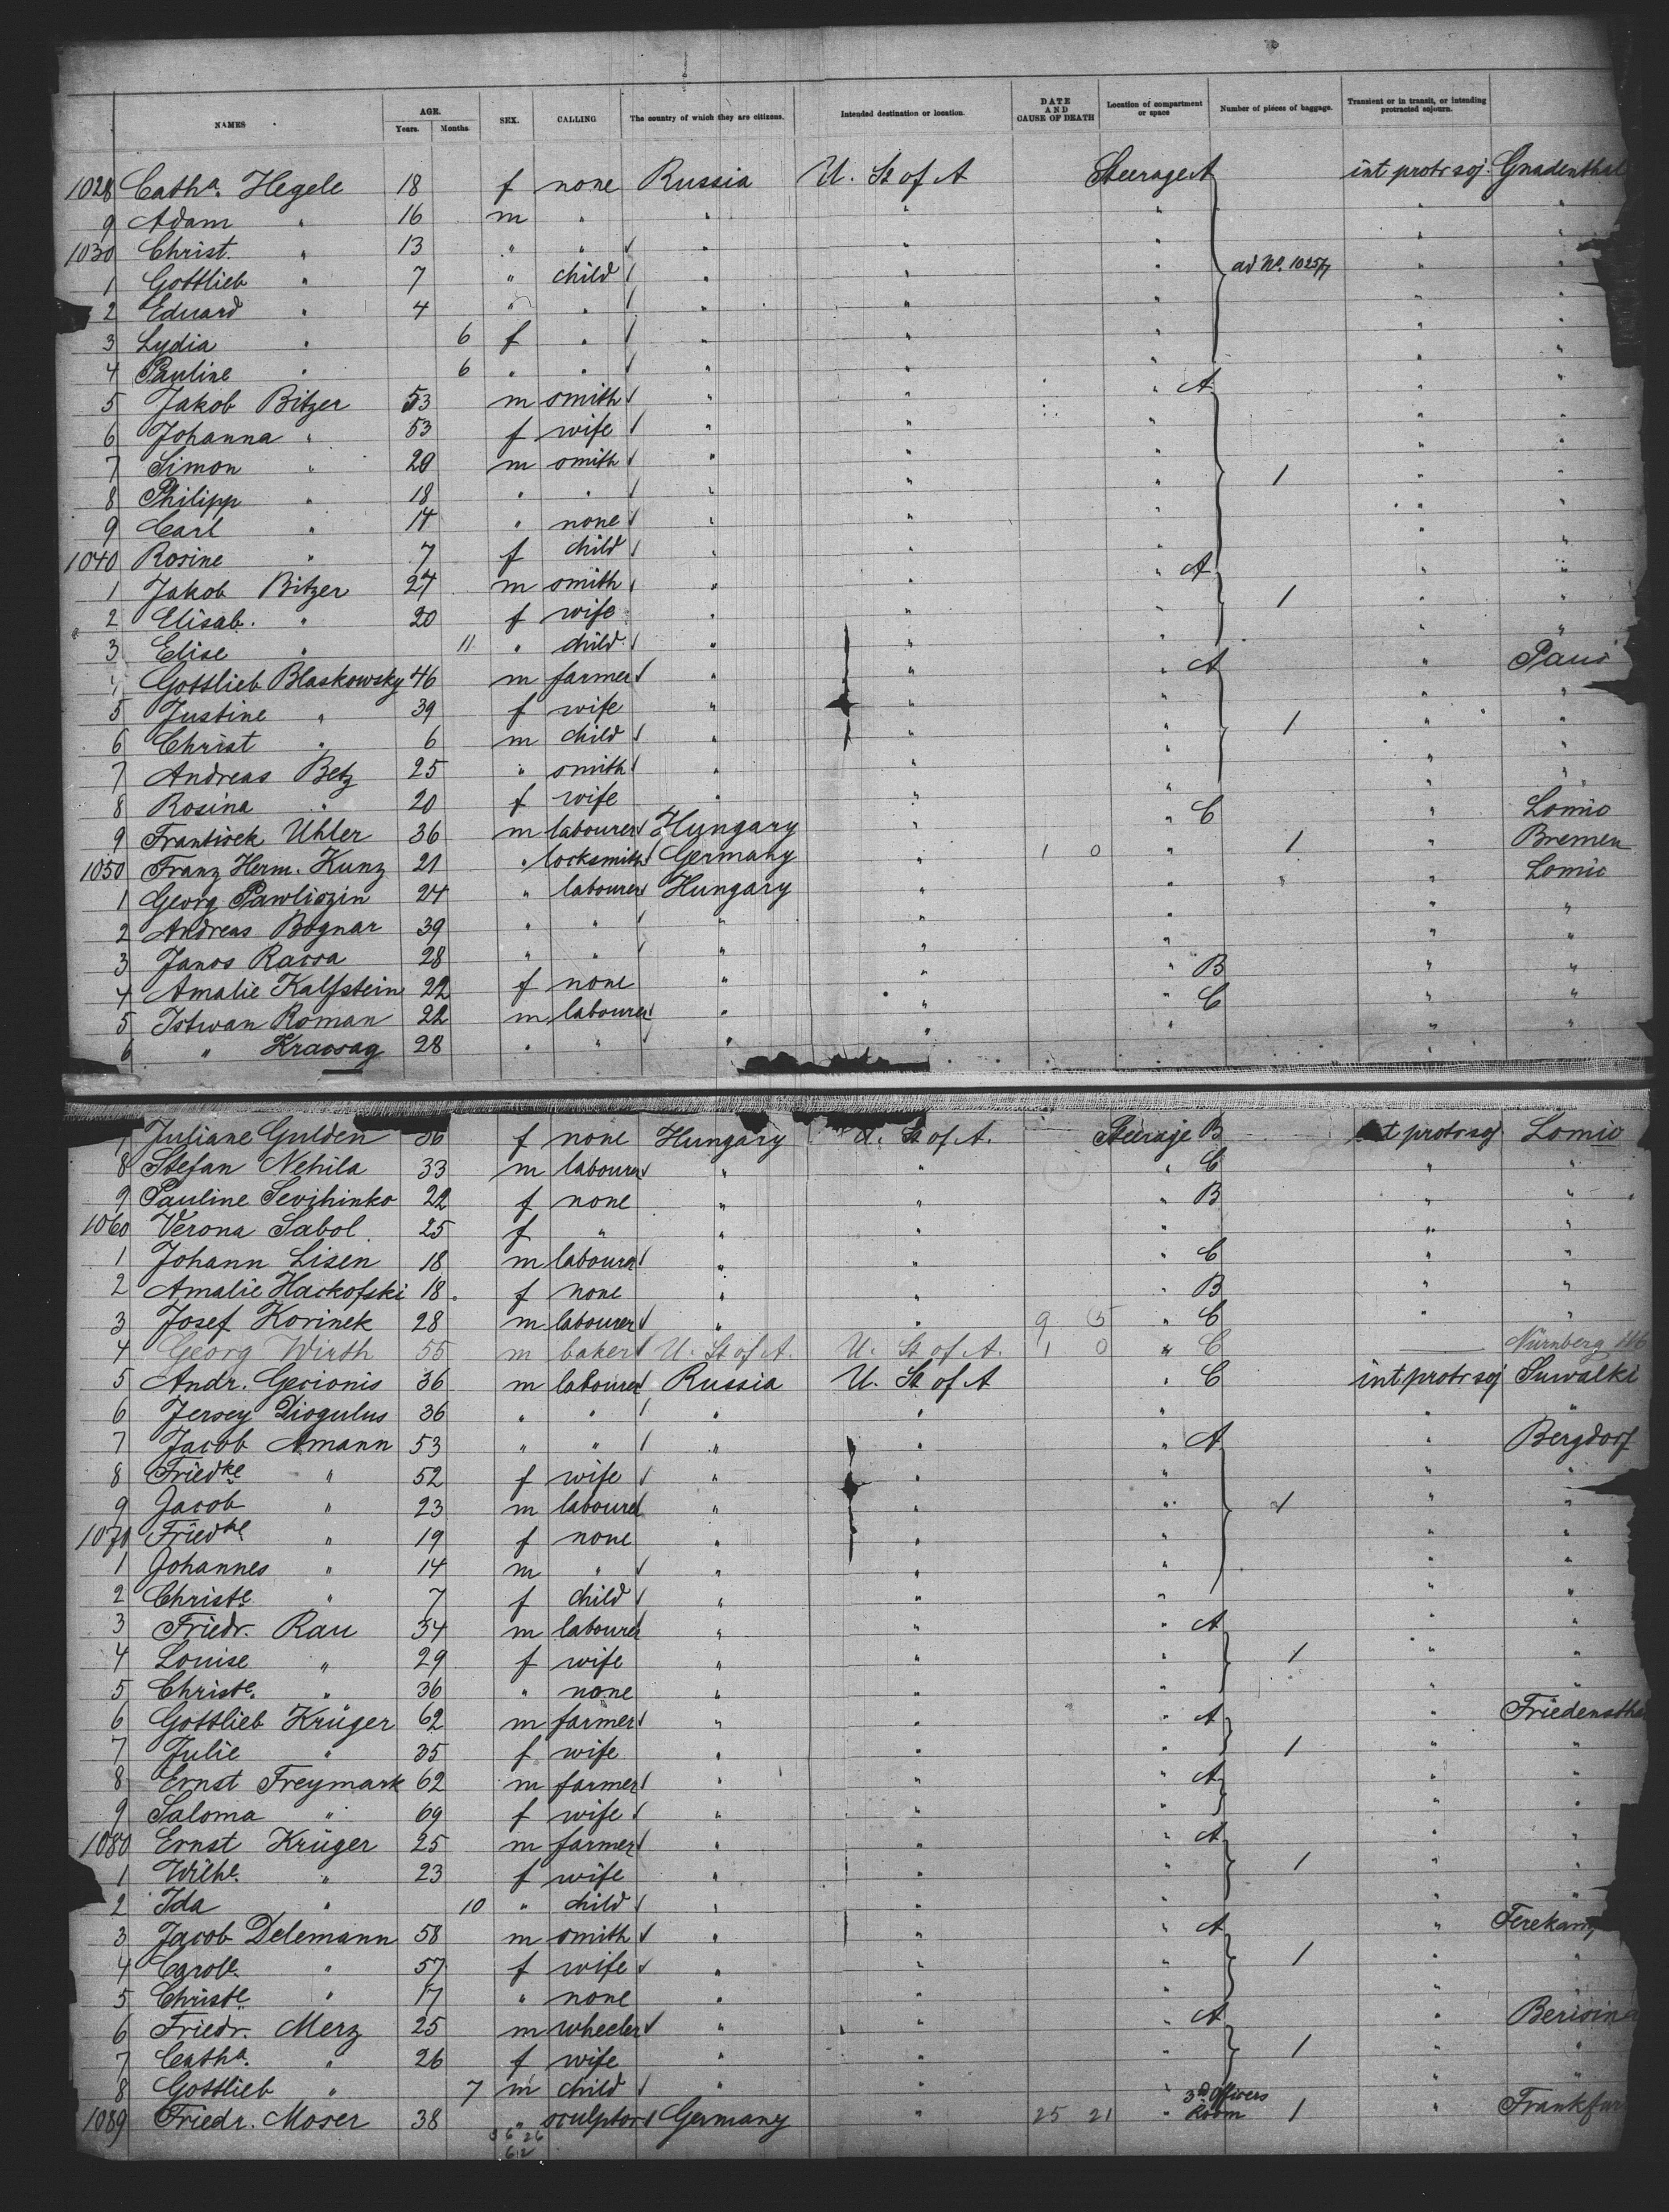 NAMES AGE. Years. Months. SEX. CALLING The country of which they are citizens. Intended destination or location. DATE AND CAUSE OF DEATH Location of compartment or space Number of pieces of baggage. Transient or in transit, or intending protracted sojourn.
1028 Catha. Hegele 18 f none Russia U. St of A Steerage A int protr soj. Gnadenthal
9 Adam " 16 m " " " " " "
1030 Christ. " 13 " " " " " " "
1 Gottlieb " 7 " child " " " ad No. 1025/7 " "
2 Eduard " 4 " " " " " " "
3 Lydia " 6 f " " " " " "
4 Pauline " 6 " " " " " " "
5 Jakob Bitzer 53 m smith " " " A " "
6 Johanna " 53 f wife " " " " "
7 Simon " 20 m smith " " " " "
8 Philipp " 18 " " " " " 1 " "
9 Carl " 14 " none " " " " "
1040 Rosine " 7 f child " " " " "
1 Jakob Bitzer 27 m smith " " " A " "
2 Elisab. " 20 f wife " " " 1 " "
3 Elise " 11 " child " " " " "
4 Gottlieb Blaskowsky 46 m farmer " " " A " Paris
5 Justine " 39 f wife " " " " "
6 Christ " 6 m child " " " 1 " "
7 Andreas Betz 25 " smith " " " " "
8 Rosina " 20 f wife " " " " "
9 Frantisek Uhler 36 m labourer Hungary " " C " Lomic
1050 Franz Herm. Kunz 21 " locksmith Germany " 1 0 " 1 " Bremen
1 Georg Pawliszin 24 " labourer Hungary " " " " Lomic
2 Andreas Bognar 39 " " " " " " "
3 Janos Racsa 28 " " " " " " "
4 Amalie Kalfstein 22 f none " " " B " "
5 Istwan Roman 22 m labourer " " " C " "
6 " Kracsag 28 " " " " " " "
7 Juliane Gulden 36 f none Hungary U. St of A. Steerage B int protr soj Lomic
8 Stefan Nehila 33 m labourer " " " C " "
9 Pauline Sevihinko 22 f none " " " B " "
1060 Verona Sabol. 25 f " " " " " "
1 Johann Lisen 18 m labourer " " " C " "
2 Amalie Hackofski 18 f none " " " B " "
3 Josef Korinek 28 m labourer " " 9 5 " C " "
4 Georg Wirth 55 m baker U. St of A. U. St of A. 1 0 " C Nürnberg
5 Andr. Gecionis 36 m labourer Russia U. St of A " C int protr soj Suwalki
6 Jersey Diogulus 36 " " " " " " "
7 Jacob Amann 53 " " " " " A " Bergdorf
8 Friedke " 52 f wife " " " " "
9 Jacob " 23 m labourer " " " 1 " "
1070 Friedke " 19 f none " " " " "
1 Johannes " 14 m " " " " " "
2 Christe. " 7 f child " " " " "
3 Friedr. Rau 34 m labourer " " " A " "
4 Louise " 29 f wife " " " 1 " "
5 Christe. " 36 " none " " " " "
6 Gottlieb Krüger 62 m farmer " " " A " Friedensthal
7 Julie " 35 f wife " " " 1 " "
8 Ernst Freymark 62 m farmer " " " A " "
9 Saloma " 69 f wife " " " " "
1080 Ernst Krüger 25 m farmer " " " A " "
1 Wilhe. " 23 f wife " " " 1 " "
2 Ida " 10 " child " " " " "
3 Jacob Delemann 58 m smith " " " A " Ferekamp
4 Carole. " 57 f wife " " " 1 " "
5 Christe. " 17 " none " " " " "
6 Friedr. Merz 25 m wheeler " " " A " Berisina
7 Catha. " 26 f wife " " " 1 " "
8 Gottlieb " 7 m child " " " " "
1089 Friedr. Moser 38 " sculptor Germany " 25 21 " 3d Officers Room 1 " Frankfur